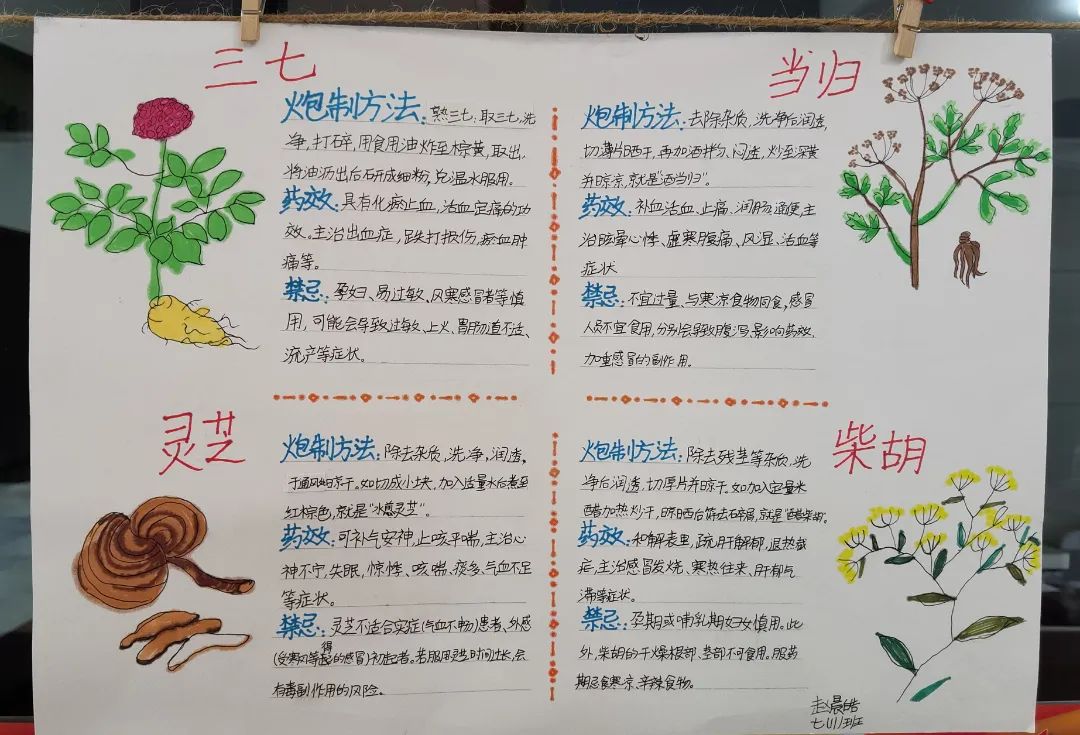 三七
炮制方法:熟三七:取三七,洗
净,打碎,用食用油炸至棕黄,取出,
将油沥出后研成细粉,兑温水服用。
药效:具有化瘀止血,活血定痛的功
效。主治出血症,跌打损伤,瘀血肿
痛等。
禁忌:孕妇、易过敏、风寒感冒者等慎
用,可能会导致过敏、上火、胃肠道不适、
流产等症状。
当归
炮制方法:去除杂质,洗净后润透,
切薄片晒干,再加酒拌匀、闷透,炒至深黄
并晾凉,就是“酒当归”。
药效:补血活血、止痛、润肠通便,主
治眩晕心悸、虚寒腹痛、风湿、活血等
症状
禁忌:不宜过量、与寒凉食物同食,感冒
人员不宜食用,分别会导致腹泻、影响药效,
加重感冒的副作用。
灵芝
炮制方法:除去杂质,洗净,润透,
于通风处晾干。如切成小块,加入适量水后煮至
红棕色,就是“水灵芝”。
药效:可补气安神,止咳平喘,主治心
神不宁,失眠,惊悸、咳喘、痰多、气血不足
等症状。
禁忌:灵芝不适合实症(气血不畅)患者、外感
(受寒风等得的感冒)初起者。若服用灵芝时间过长,会
有毒副作用的风险。
柴胡
炮制方法:除去残茎等杂质,洗
净后润透,切厚片并晾干。如加入定量米
醋加热炒干,晾晒后筛去碎屑,就是“醋柴胡”。
药效:和解表里,疏肝解郁,退热截
疟,主治感冒发烧、寒热往来、肝郁气
滞等症状。
禁忌:孕期或哺乳期妇女慎用。此
外,柴胡的干燥根部、茎部不可食用。服药
期忌食寒凉、辛辣食物。
赵晨皓
七(1)班